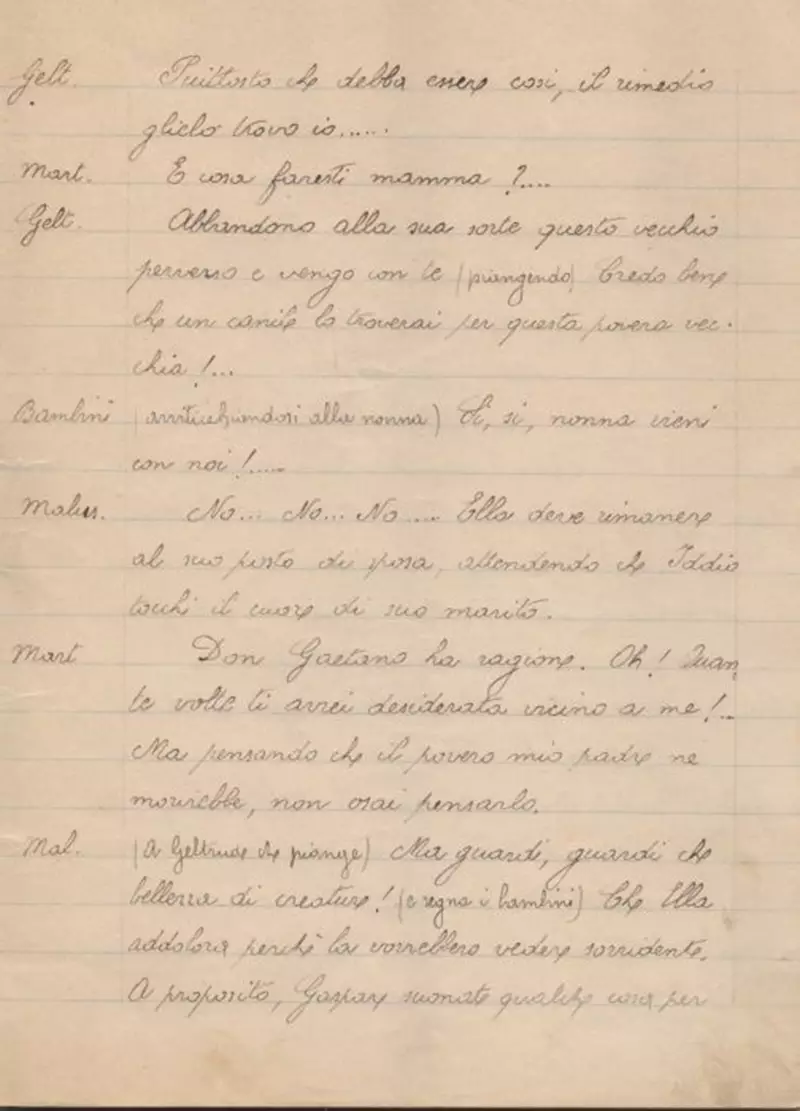 Gelt. Piuttosto che debba essere così, il rimedio
glielo trovo io......
Mart. E cosa faresti mamma ?....
Gelt. Abbandono alla sua sorte questo vecchio
perverso e vengo con te (piangendo) Credo bene
che un canile lo troverai per questa povera vec-
chia !...
Bambini (avviticchiandosi alla nonna) Sì, si, nonna vieni
con noi !.....
Malus. No... No... No .... Ella deve rimanere
al suo posto di sposa, attendendo che Iddio
tocchi il cuore di suo marito.
Mart Don Gaetano ha ragione. Oh! Quan
te volte ti avrei desiderata vicino a me !..
Ma pensando che il povero mio padre ne
morirebbe, non osai pensarlo.
Mal. (A Geltrude che piange) Ma guardi, guardi che
bellezza di creature! (e segna i bambini) Che Ella
addolora perchè la vorrebbero vedere sorridente.
A proposito, Gaspare suonate qualche cosa per